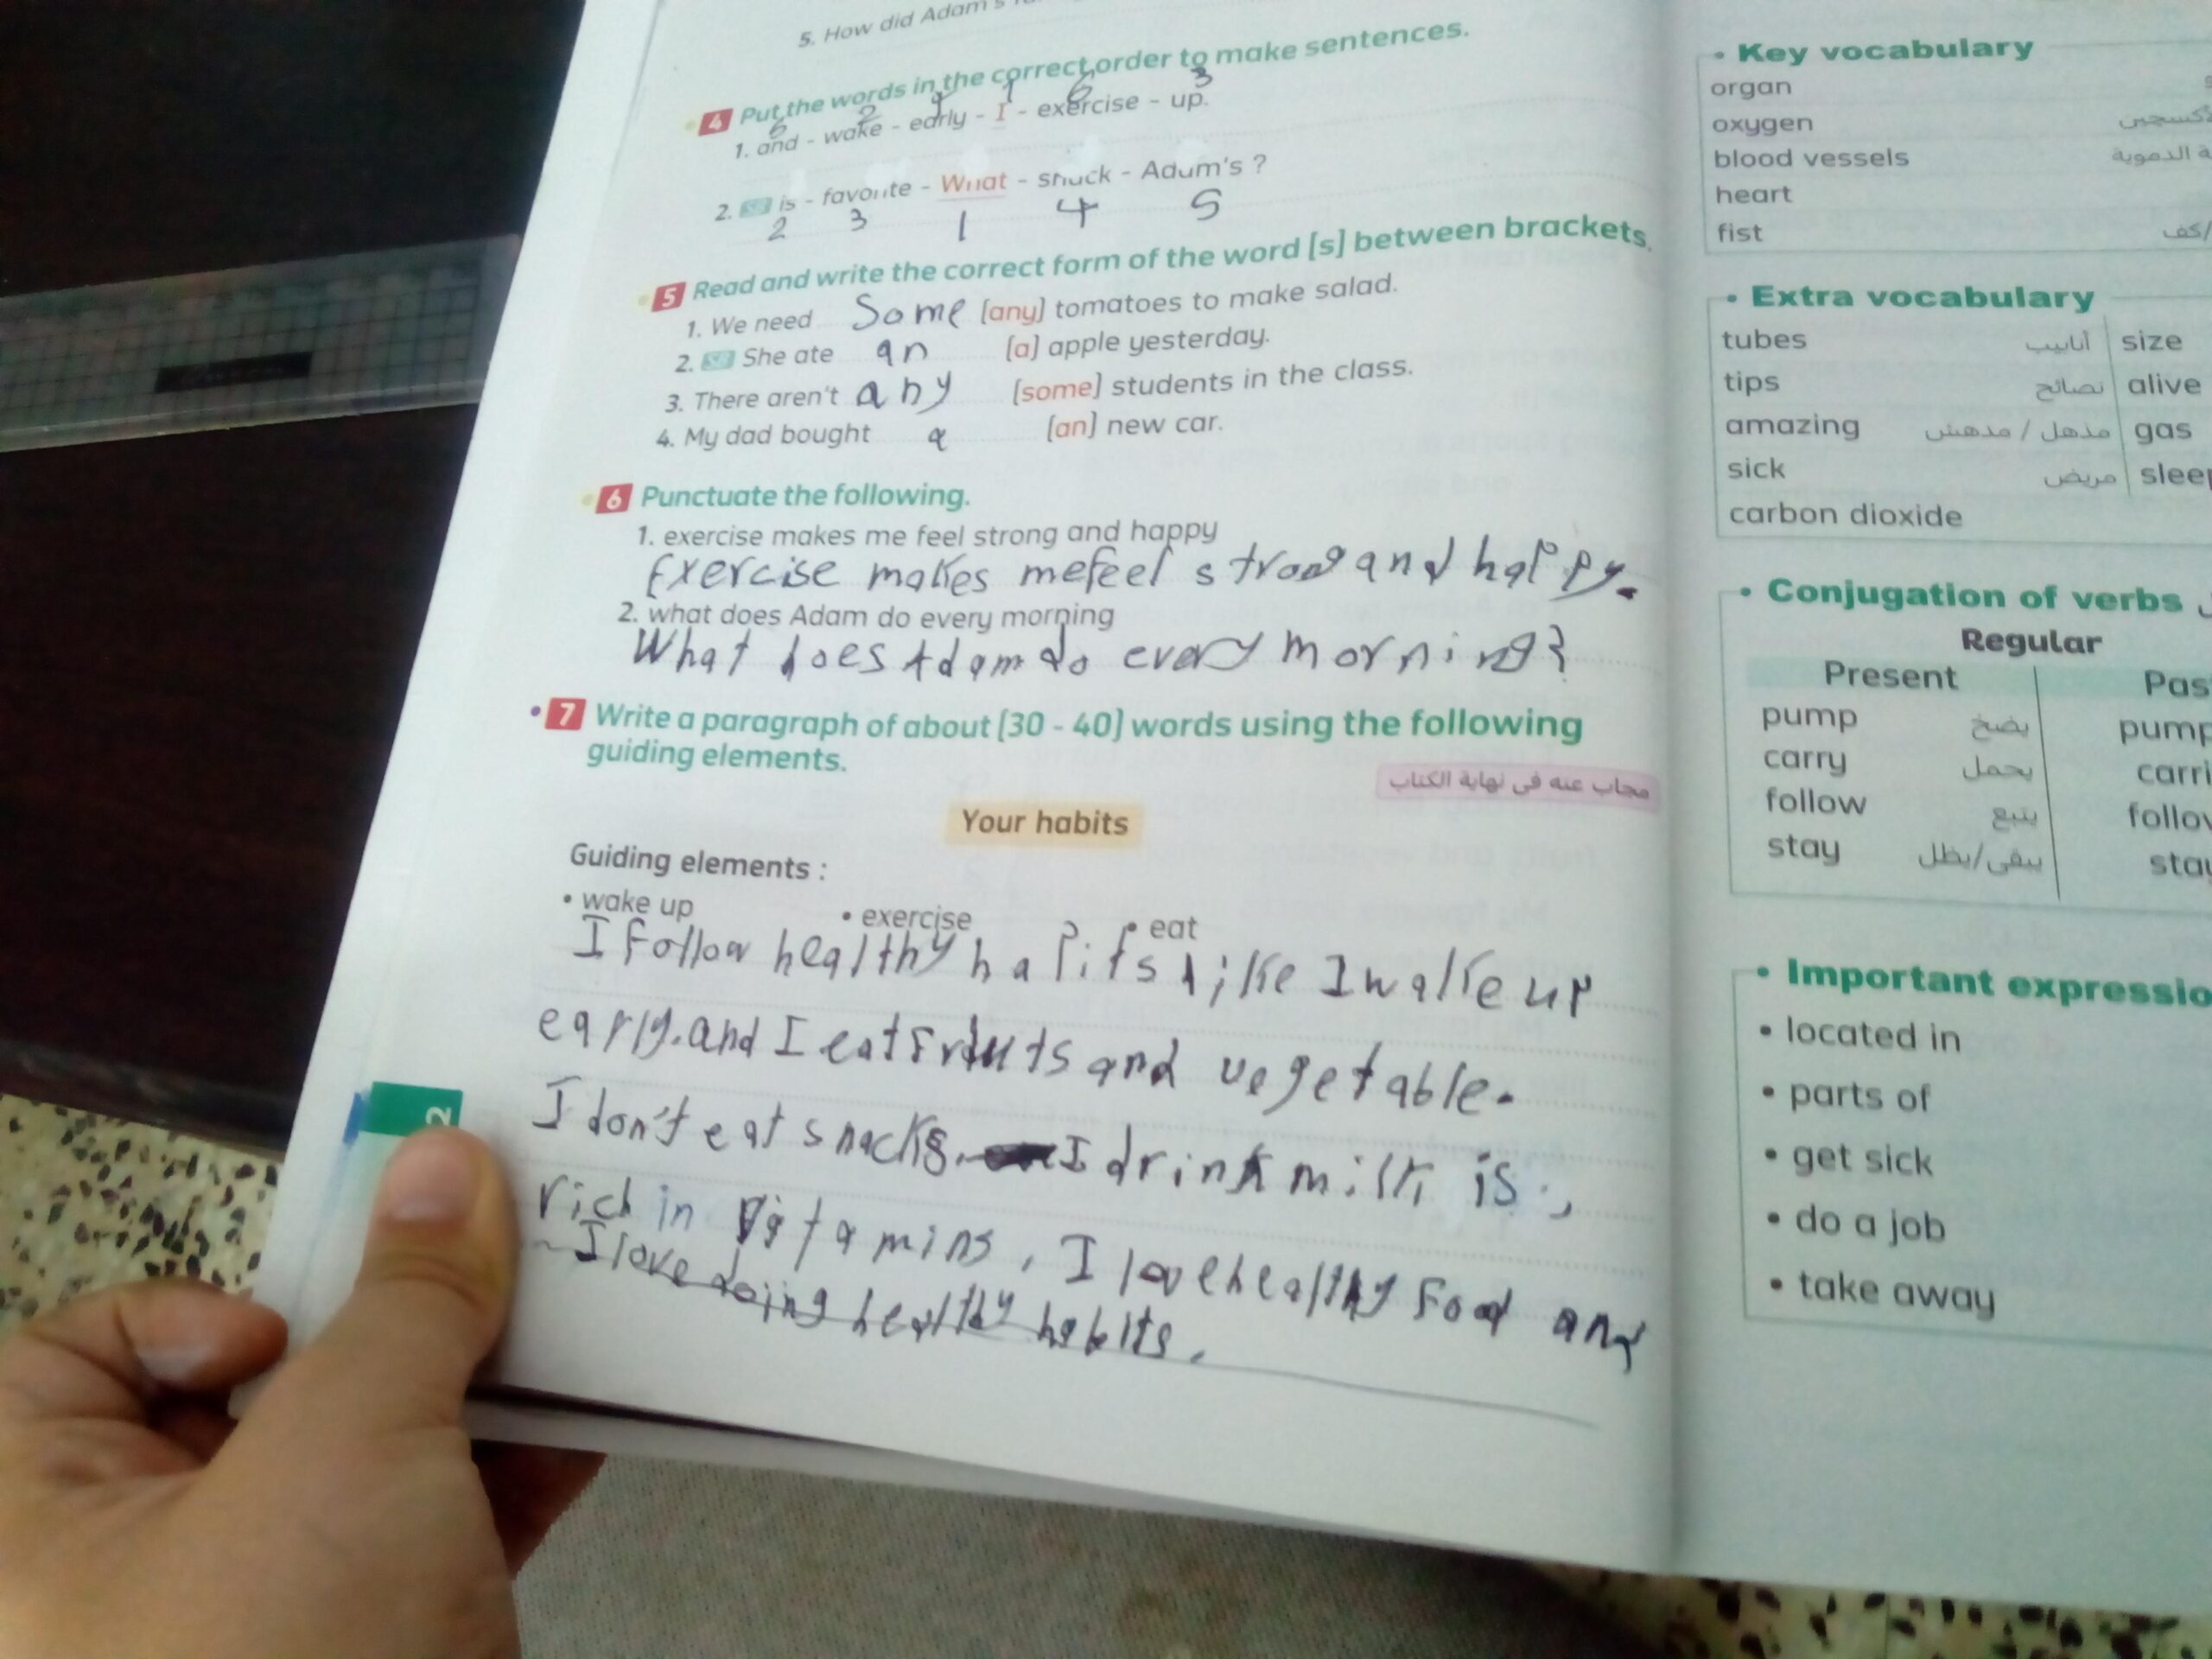 5. How did Adam's
4 Put the words in the correct order to make sentences.
5 2 4 1 6 3
1. and - wake - early - I - exercise - up.
2. SB is - favorite - What - snack - Adam's ?
2 3 1 4 5
5 Read and write the correct form of the word [s] between brackets.
1. We need Some [any] tomatoes to make salad.
2. SB She ate an [a] apple yesterday.
3. There aren't any [some] students in the class.
4. My dad bought a [an] new car.
6 Punctuate the following.
1. exercise makes me feel strong and happy
Exercise makes me feel strong and happy.
2. what does Adam do every morning
What does Adam do every morning?
7 Write a paragraph of about [30 - 40] words using the following
guiding elements.
مجاب عنه فى نهاية الكتاب
Your habits
Guiding elements :
• wake up • exercise • eat
I follow healthy habits like I wake up
early. and I eat fruits and vegetable.
I don't eat snacks. I drink milk is,
rich in vitamins, I love healthy food and
I love doing healthy habits.
2
• Key vocabulary
organ
oxygen
blood vessels
heart
fist
• Extra vocabulary
tubes أنابيب size
tips نصائح alive
amazing مذهل / مدهش gas
sick مريض
carbon dioxide
• Conjugation of verbs
Regular
Present
pump يضخ
carry يحمل
follow يتبع
stay يبقى/يظل
• Important
• located in
• parts of
• get sick
• do a job
• take away